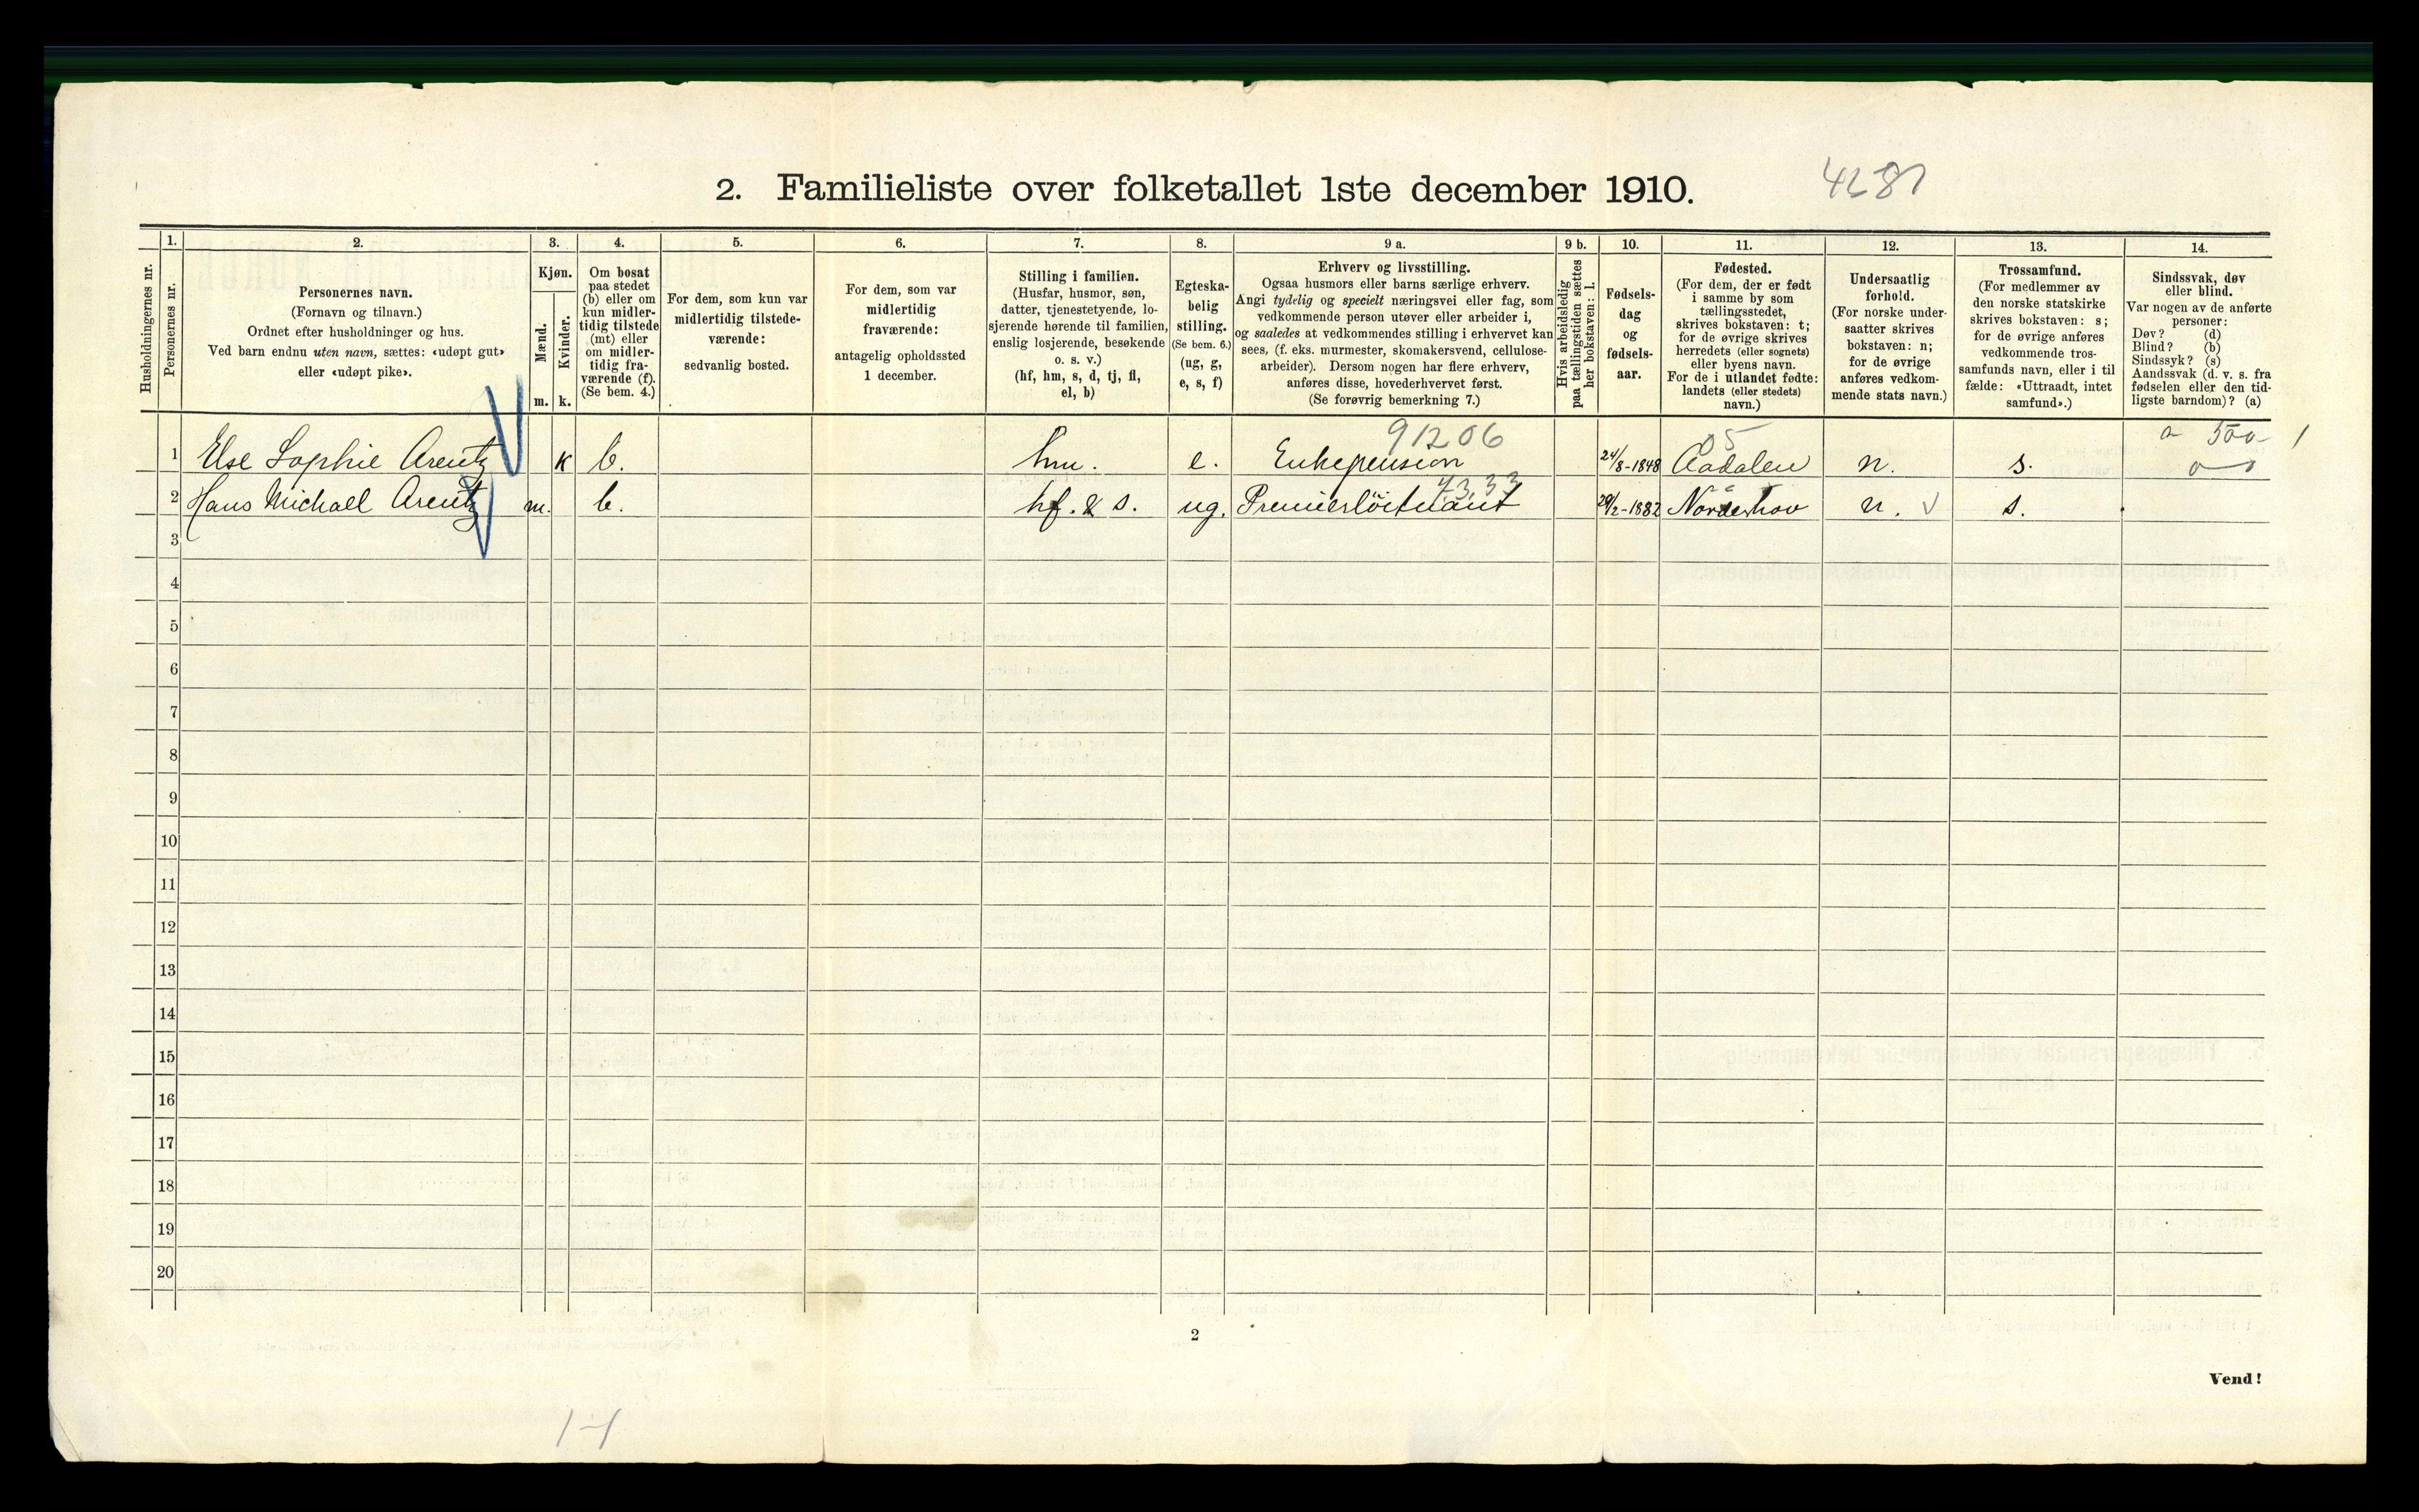 2. Familieliste over folketallet 1ste december 1910.
Husholdningernes nr.
1.
Personernes nr.
2.
Personernes navn.
(Fornavn og tilnavn.)
Ordnet efter husholdninger og hus.
Ved barn endnu uten navn, sættes: «udøpt gut»
eller «udøpt pike».
3.
Kjøn.
Mænd.
m.
Kvinder.
k.
4.
Om bosat
paa stedet
(b) eller om
kun midler-
tidig tilstede
(mt) eller
om midler-
tidig fra-
værende (f).
(Se bem. 4.)
5.
For dem, som kun var
midlertidig tilstede-
værende:
sedvanlig bosted.
6.
For dem, som var
midlertidig
fraværende:
antagelig opholdssted
1 december.
7.
Stilling i familien.
(Husfar, husmor, søn,
datter, tjenestetyende, lo-
sjerende hørende til familien,
enslig losjerende, besøkende
o. s. v.)
(hf, hm, s, d, tj, fl,
el, b)
8.
Egteska-
belig
stilling.
(Se bem. 6.)
(ug, g,
e, s, f)
9 a.
Erhverv og livsstilling.
Ogsaa husmors eller barns særlige erhverv.
Angi tydelig og specielt næringsvei eller fag, som
vedkommende person utøver eller arbeider i,
og saaledes at vedkommendes stilling i erhvervet kan
sees, (f. eks. murmester, skomakersvend, cellulose-
arbeider). Dersom nogen har flere erhverv,
anføres disse, hovederhvervet først.
(Se forøvrig bemerkning 7.)
9 b.
Hvis arbeidsledig
paa tællingstiden sættes
her bokstaven: l.
10.
Fødsels-
dag
og
fødsels-
aar.
11.
Fødested.
(For dem, der er født
i samme by som
tællingsstedet,
skrives bokstaven: t;
for de øvrige skrives
herredets (eller sognets)
eller byens navn.
For de i utlandet fødte:
landets (eller stedets)
navn.)
12.
Undersaatlig
forhold.
(For norske under-
saatter skrives
bokstaven: n;
for de øvrige
anføres vedkom-
mende stats navn.)
13.
Trossamfund.
(For medlemmer av
den norske statskirke
skrives bokstaven: s;
for de øvrige anføres
vedkommende tros-
samfunds navn, eller i til
fælde: «Uttraadt, intet
samfund».)
14.
Sindssvak, døv
eller blind.
Var nogen av de anførte
personer:
Døv? (d)
Blind? (b)
Sindssyk? (s)
Aandssvak (d. v. s. fra
fødselen eller den tid-
ligste barndom)? (a)
91206 05
1 Else Sophie Arentz k b. hm. e. Enkepension 24/8-1848 Aadalen n. s.
43,33
2 Hans Michael Arentz m. b. hf. & s. ug. Premierlöitnant 20/2-1882 Norderhov n. s.
3
4
5
6
7
8
9
10
11
12
13
14
15
16
17
18
19
20
2
Vend!
1-1